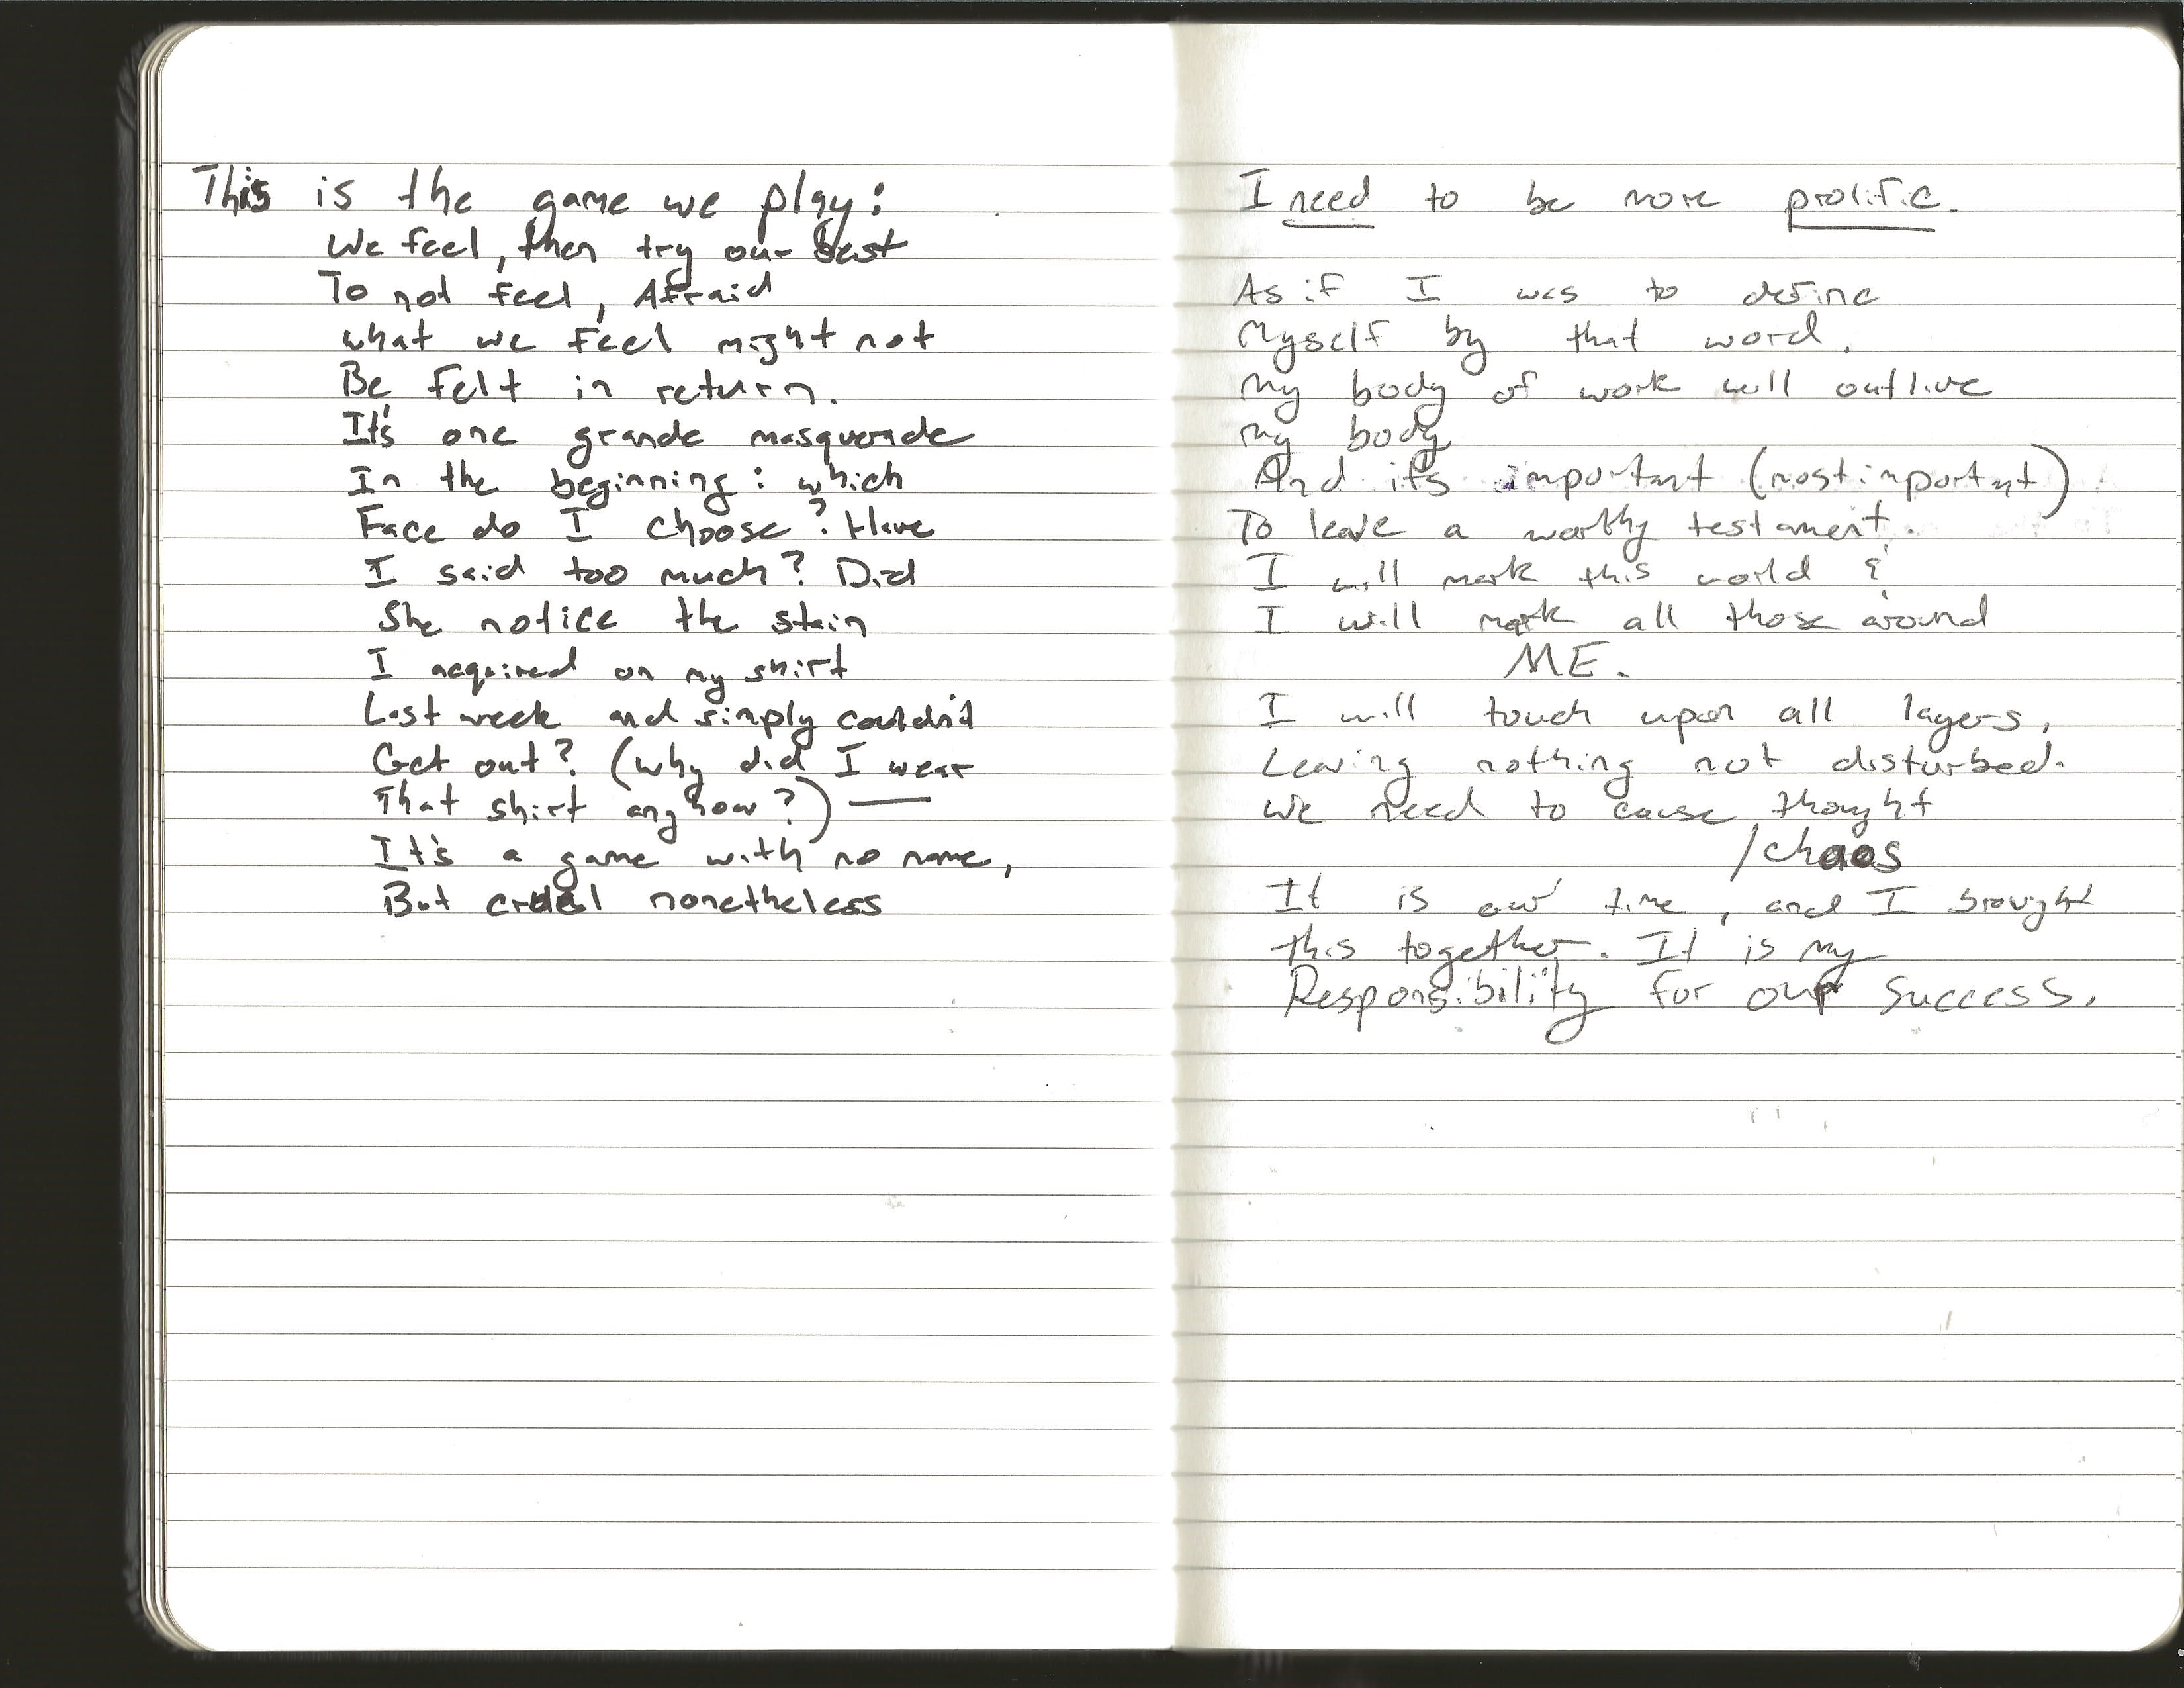 This is the game we play:
We feel, then try our best
To not feel, Afraid
what we feel might not
Be felt in return.
It's one grande masquerade
In the beginning: which
Face do I choose? Have
I said too much? Did
She notice the stain
I acquired on my shirt
Last week and simply couldn't
Get out? (why did I wear
That shirt anyhow?) —
It's a game with no name,
But cruel nonetheless
I need to be more prolific.
As if I was to define
Myself by that word.
My body of work will outlive
my body
And it's important (most important)
To leave a worthy testament.
I will mark this world &
I will mark all those around
ME.
I will touch upon all layers,
Leaving nothing not disturbed.
We need to cause thought
/chaos
It is our time, and I brought
this together. It is my
Responsibility for our success.